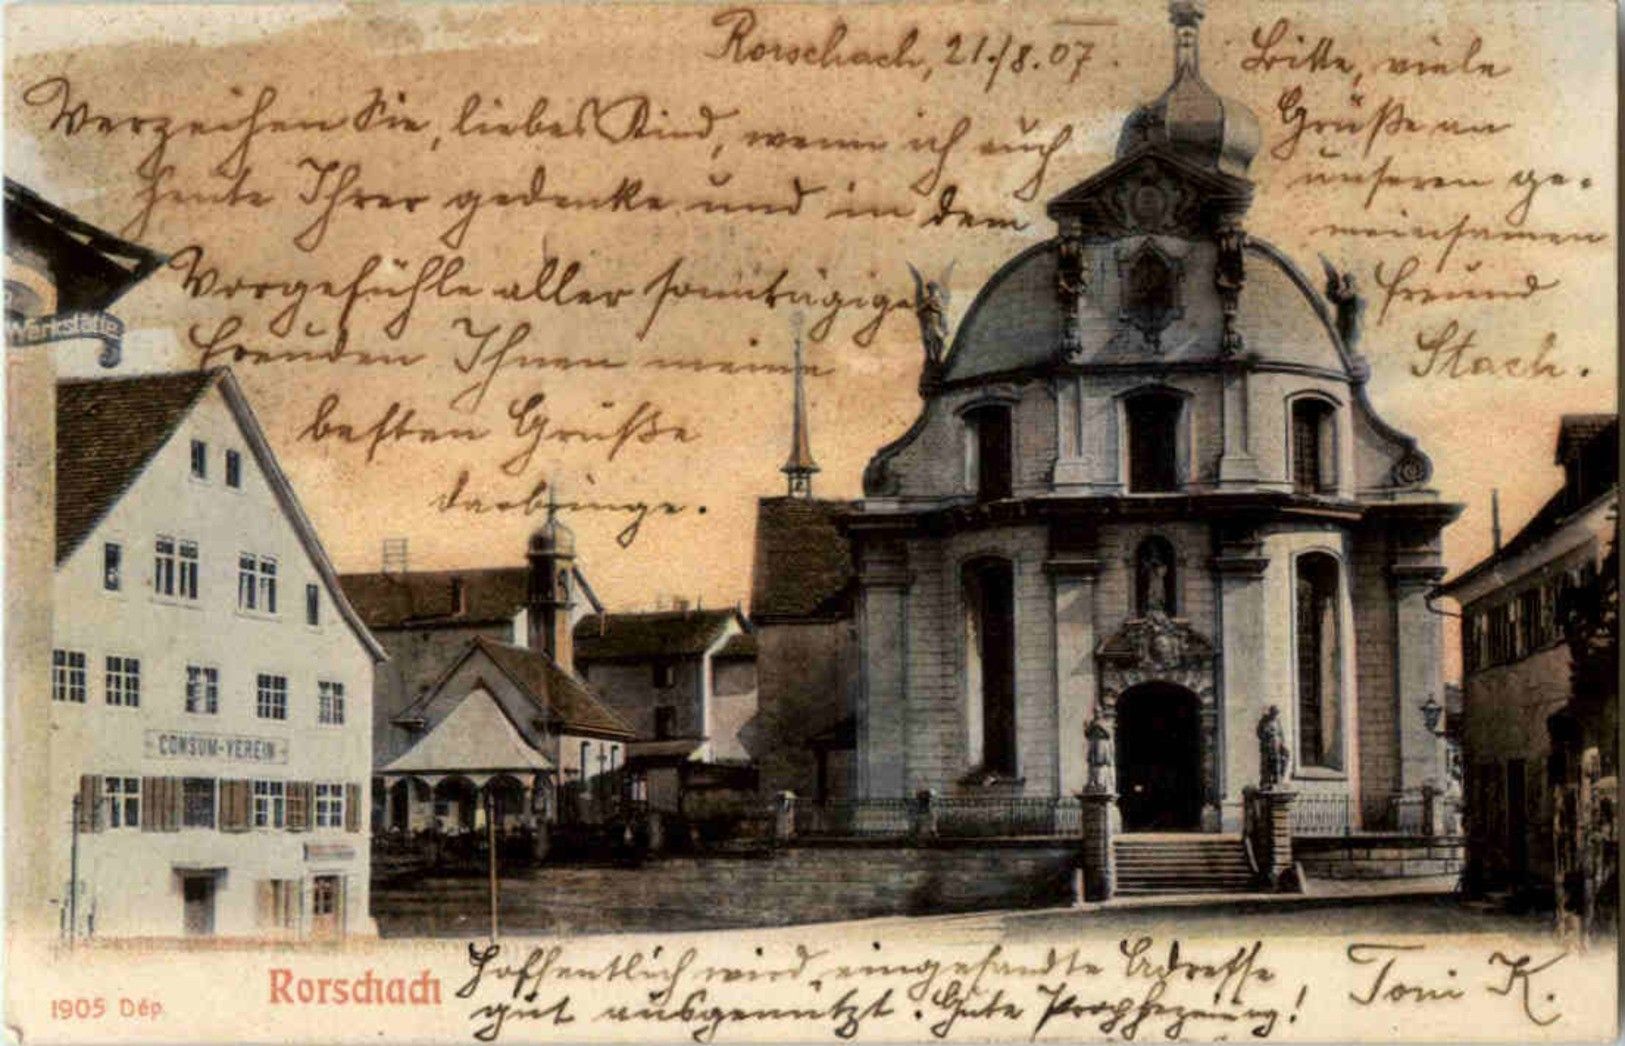 Rorschach, 21./8.07.
Verzeihen Sie, liebes Kind, wenn ich auch
heute Ihrer gedenke und in dem
Vorgefühle aller sonntägigen
Freuden Ihnen meine
besten Grüße
darbringe.
Bitte, viele
Grüße an
unseren ge-
meinsamen
Freund
Stach.
Werkstätte
CONSUM-VEREIN
1905 Dép.
Rorschach
Hoffentlich wird eingesandte Adresse
gut ausgenützt. Gute Prophezeiung!
Toni K.